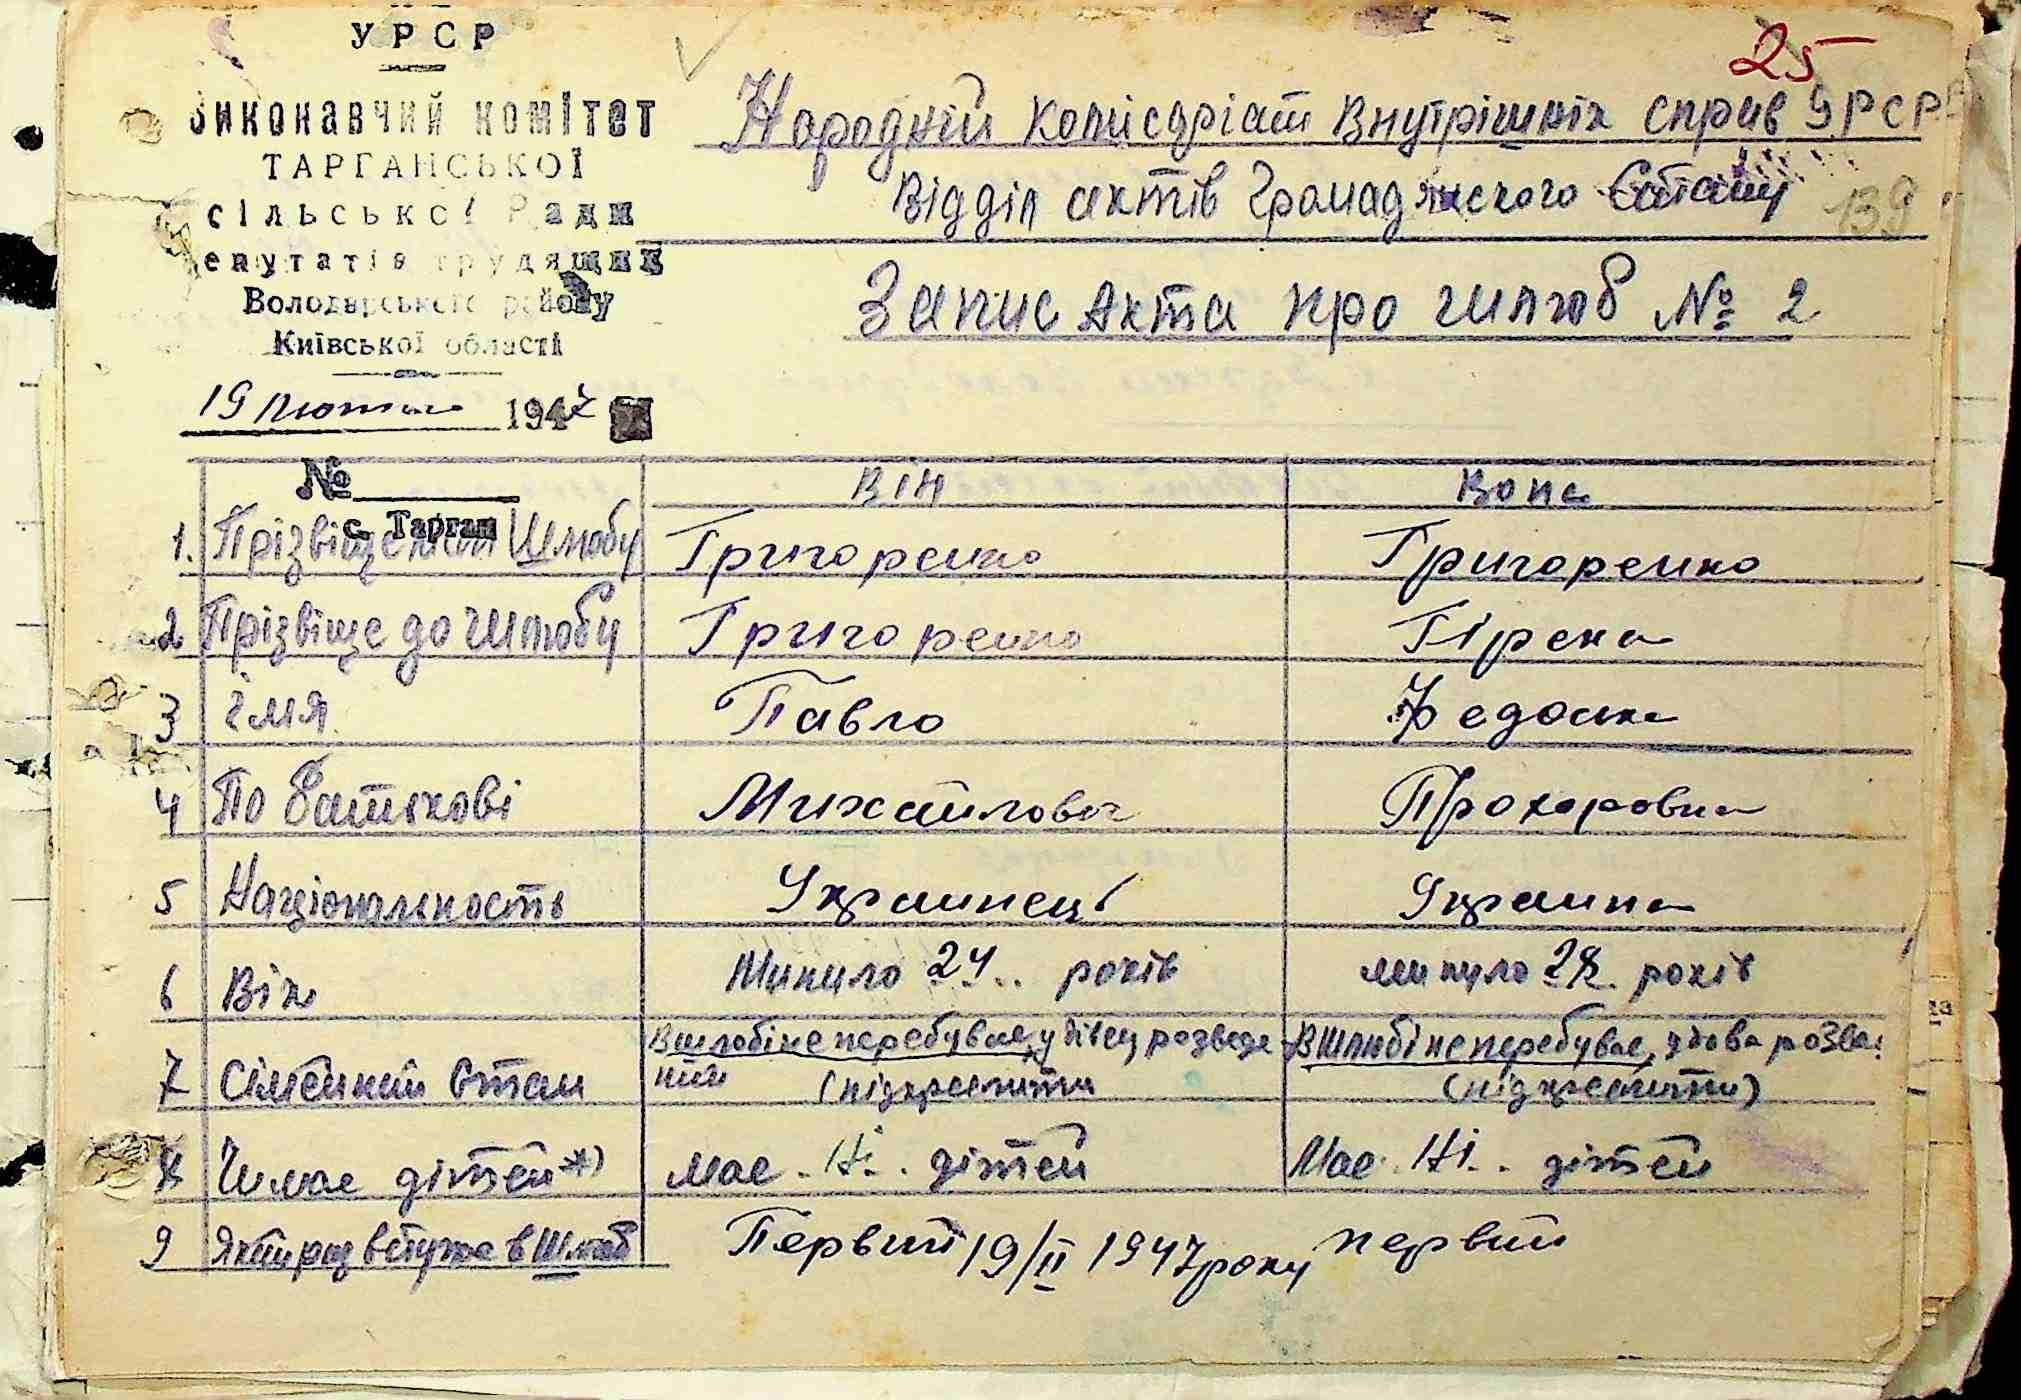 УРСР
Виконавчий комітет
ТАРГАНСЬКОЇ
сільської Ради
епутатів трудящих
Володарського району
Київської області
19 лютого 1947
№
с. Тарган
25
Народній Комісаріат Внутрішніх справ УРСР
Відділ актів Громадянского Стану
139
Запис Акта про шлюб № 2
Він Вона
1. Прізвище Шлюбу Григоренко Григоренко
2 Прізвище до шлюбу Григоренко Гірека
3 імя Павло Федоська
4 По батькові Михайлович Прохоровна
5 Національность Украинець Украинка
6 Вік Минуло 24.. років минуло 28. років
7 Сімейний Стан В шлюбі не перебував, удівец розведе- ний (підкреслити В шлюбі не перебував, удова розве. (підкреслити)
8 Чи має дітей *) має. Ні.. дітей Має. Ні.. дітей
9 Який раз вступає в Шлюб Первий 19/II 1947 року первий